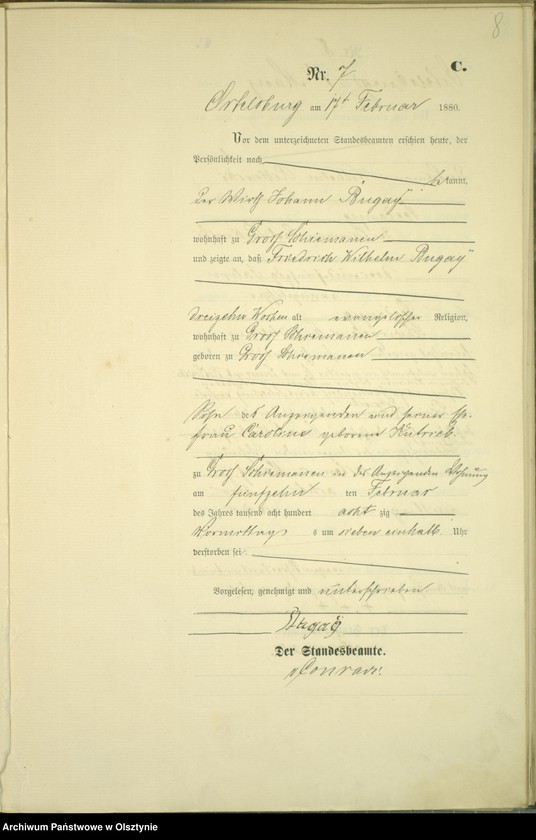 8
C.
Nr. 7
Ortelsburg am 17t Februar 1880.
Vor dem unterzeichneten Standesbeamten erschien heute, der
Persönlichkeit nach
be kannt,
der Wirth Johann Bugaÿ
wohnhaft zu Groß Schiemanen
und zeigte an, daß Friedrich Wilhelm Bugaÿ
dreizehn Wochen alt evangelischer Religion,
wohnhaft zu Groß Schiemanen
geboren zu Groß Schiemanen
Sohn des Anzeigenden und seiner Ehe
frau Caroline geborene Kutrieb
zu Groß Schiemanen in des Anzeigenden Wohnung
am fünfzehn ten Februar
des Jahres tausend acht hundert acht zig
Vormittags um sieben einhalb Uhr
verstorben sei.
Vorgelesen, genehmigt und unterschrieben
Bugaÿ
Der Standesbeamte.
Conradi.
Archiwum Państwowe w Olsztynie